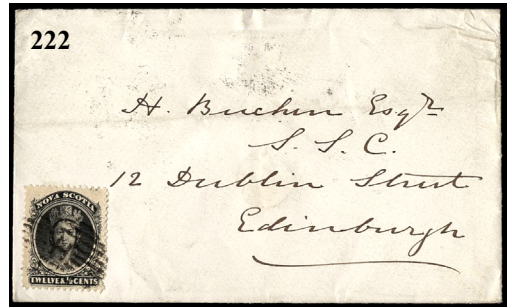 222
H. Buchan Esqre
S. S. C.
12 Dublin Street
Edinburgh
NOVA SCOTIA
TWELVE & ½ CENTS